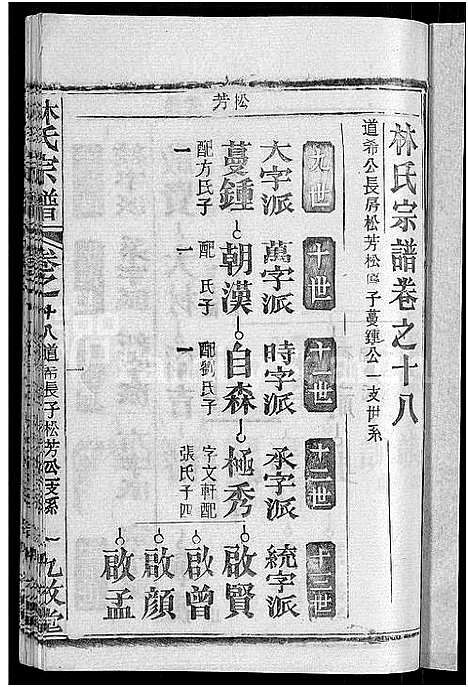 林氏宗譜卷之十八
道希公長房松芳松 子蔓鍾公一支世系
松芳
九世
十世
十一世
十二世
十三世
大字派
萬字派
時字派
承字派
統字派
蔓鍾
朝漢
自森
極秀
啟賢
啟曾
啟顏
啟孟
配方氏子一
配 氏子一
配劉氏子一
字文軒配張氏子四
林氏宗譜
卷之十八道希長子松芳公支系
一
九牧堂